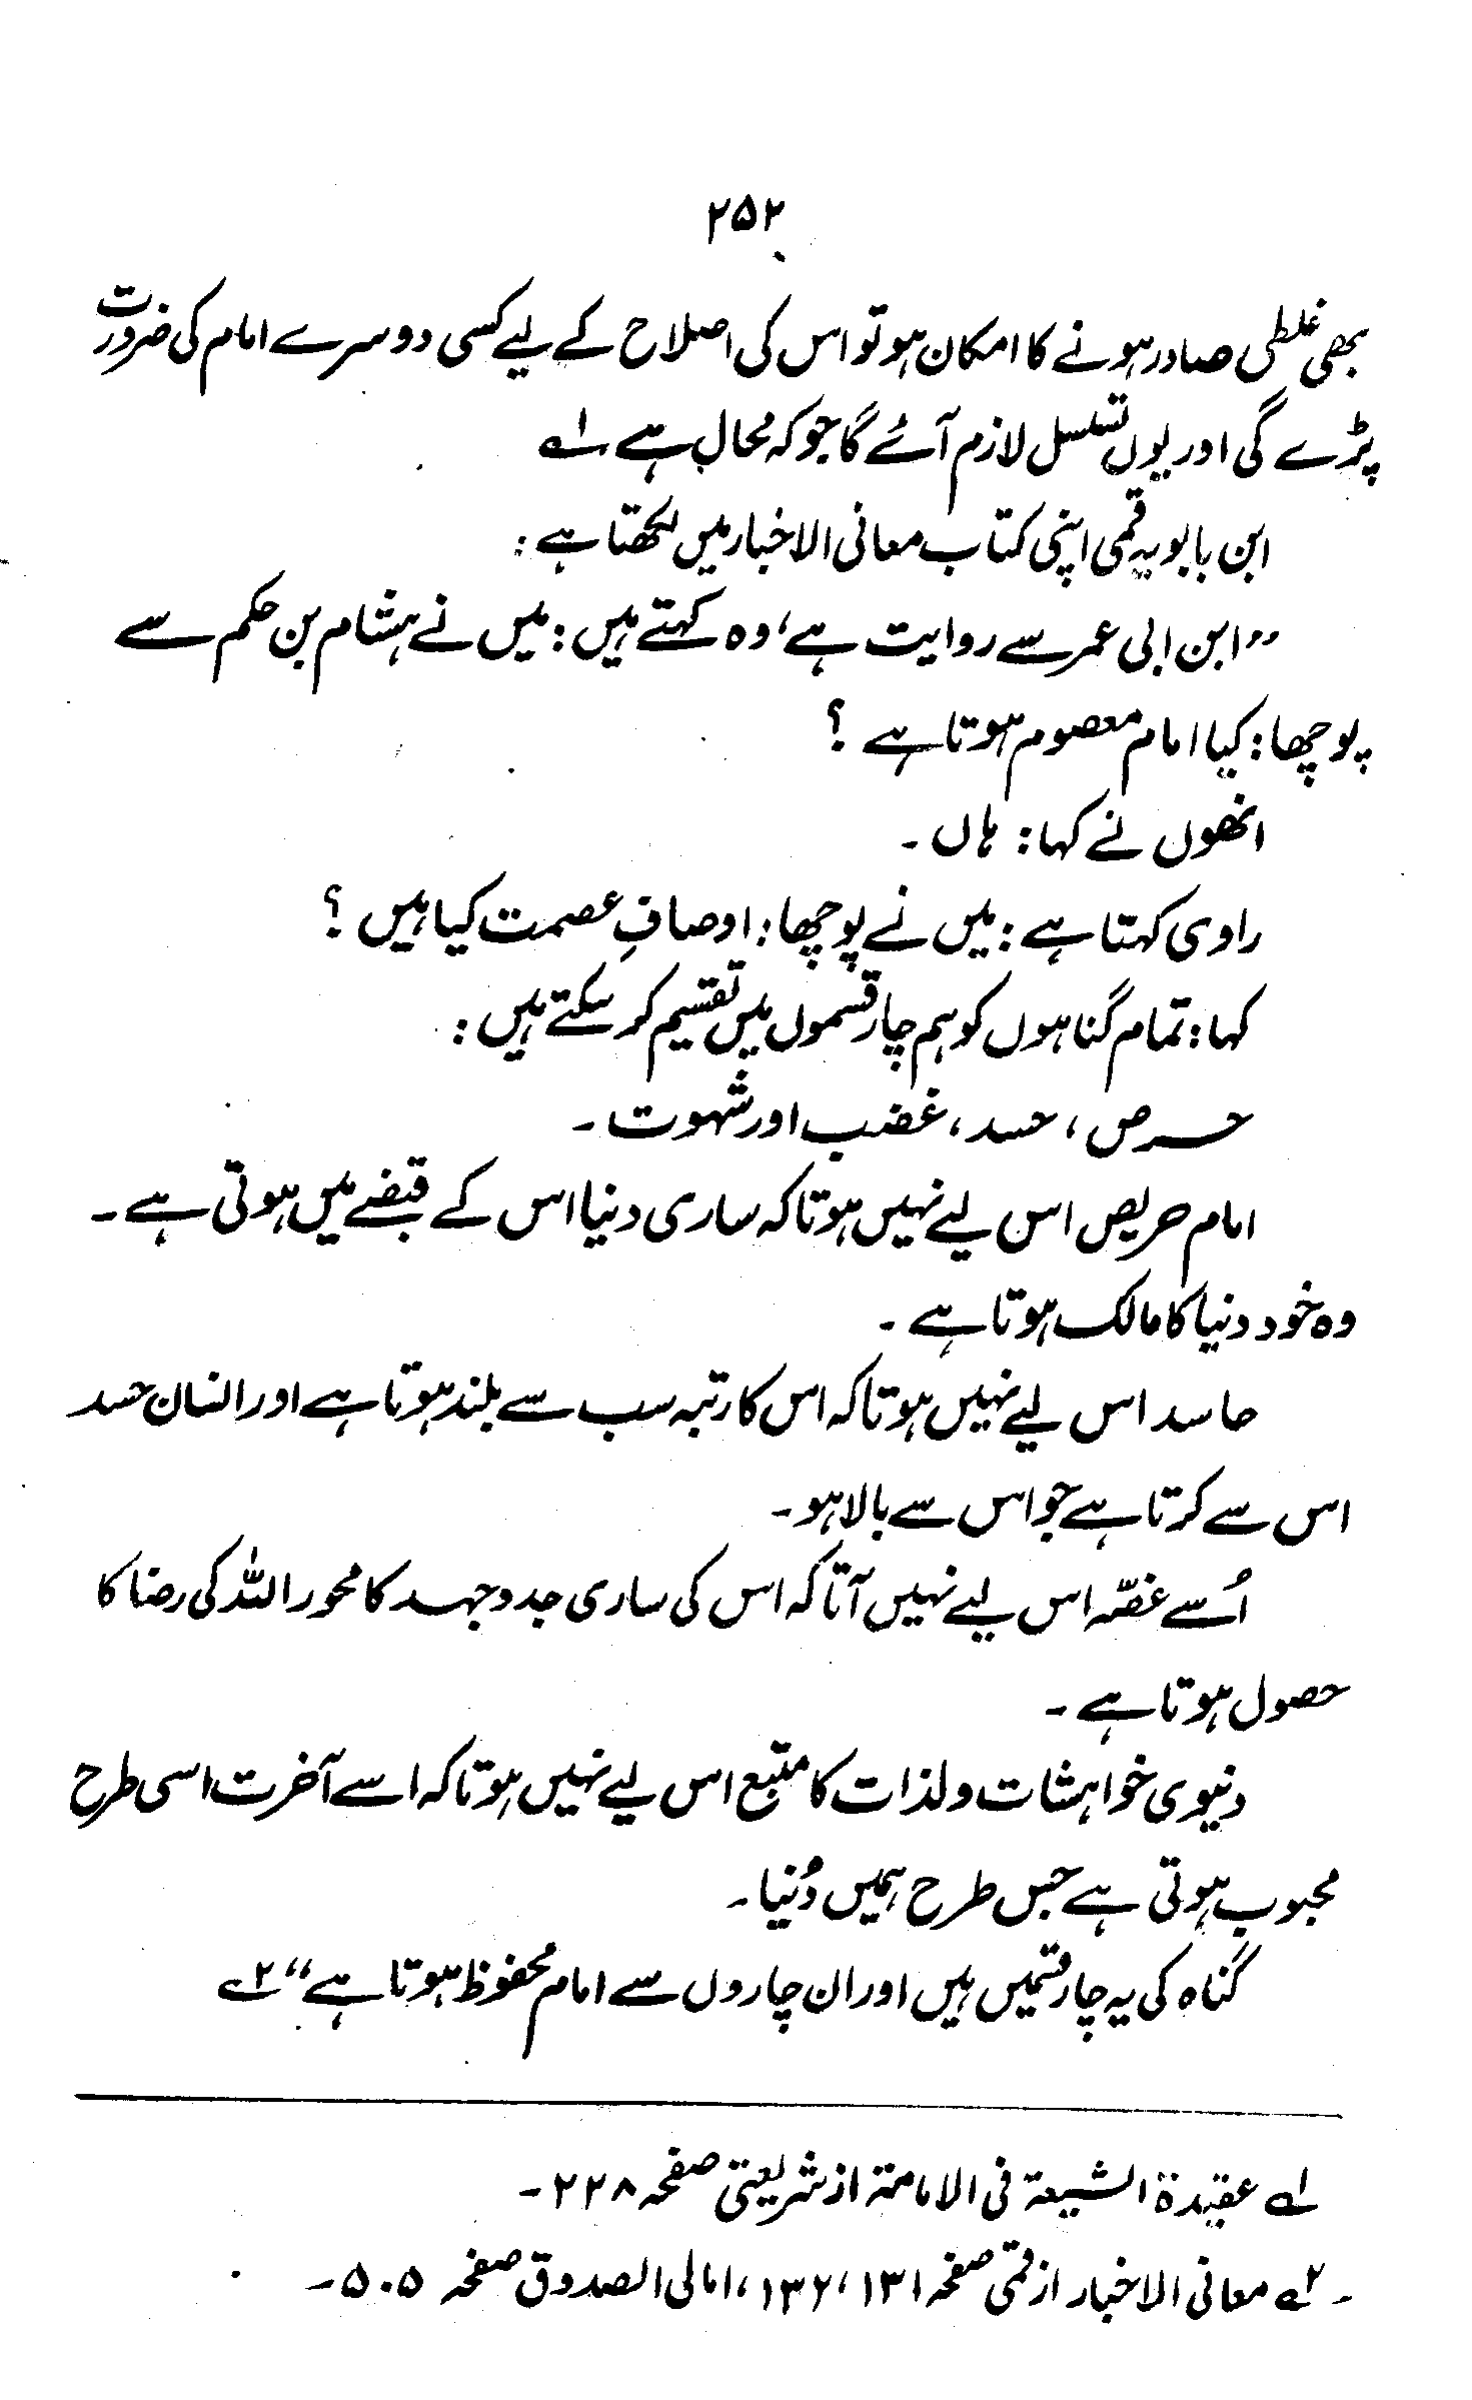 ۲۵۲
بھی غلطی صادر ہونے کا امکان ہو تو اس کی اصلاح کے لیے کسی دوسرے امام کی ضرورت
پڑے گی اور یوں تسلسل لازم آئے گا جو کہ محال ہے ۱ے
ابن بابویہ قمی اپنی کتاب معانی الاخبار میں لکھتا ہے :
”ابن ابی عمر سے روایت ہے، وہ کہتے ہیں : میں نے ہشام بن حکم سے
پوچھا : کیا امام معصوم ہوتا ہے ؟
انھوں نے کہا : ہاں ۔
راوی کہتا ہے : میں نے پوچھا : اوصافِ عصمت کیا ہیں ؟
کہا : تمام گناہوں کو ہم چار قسموں میں تقسیم کر سکتے ہیں :
حرص ، حسد ، غضب اور شہوت ۔
امام حریص اس لیے نہیں ہوتا کہ ساری دنیا اس کے قبضے میں ہوتی ہے ۔
وہ خود دنیا کا مالک ہوتا ہے ۔
حاسد اس لیے نہیں ہوتا کہ اس کا رتبہ سب سے بلند ہوتا ہے اور انسان حسد
اس سے کرتا ہے جو اس سے بالا ہو ۔
اُسے غصّہ اس لیے نہیں آتا کہ اس کی ساری جدوجہد کا محور اللہ کی رضا کا
حصول ہوتا ہے ۔
دنیوی خواہشات و لذات کا متبع اس لیے نہیں ہوتا کہ اسے آخرت اسی طرح
محبوب ہوتی ہے جس طرح ہمیں دُنیا ۔
گناہ کی یہ چار قسمیں ہیں اور ان چاروں سے امام محفوظ ہوتا ہے“ ۲ے
۱ے عقیدۃ الشیعۃ فی الامامۃ از شریعتی صفحہ ۲۲۸ ۔
۲ے معانی الاخبار از قمی صفحہ ۱۳۱، ۱۳۲، امالی الصدوق صفحہ ۵۰۵ ۔